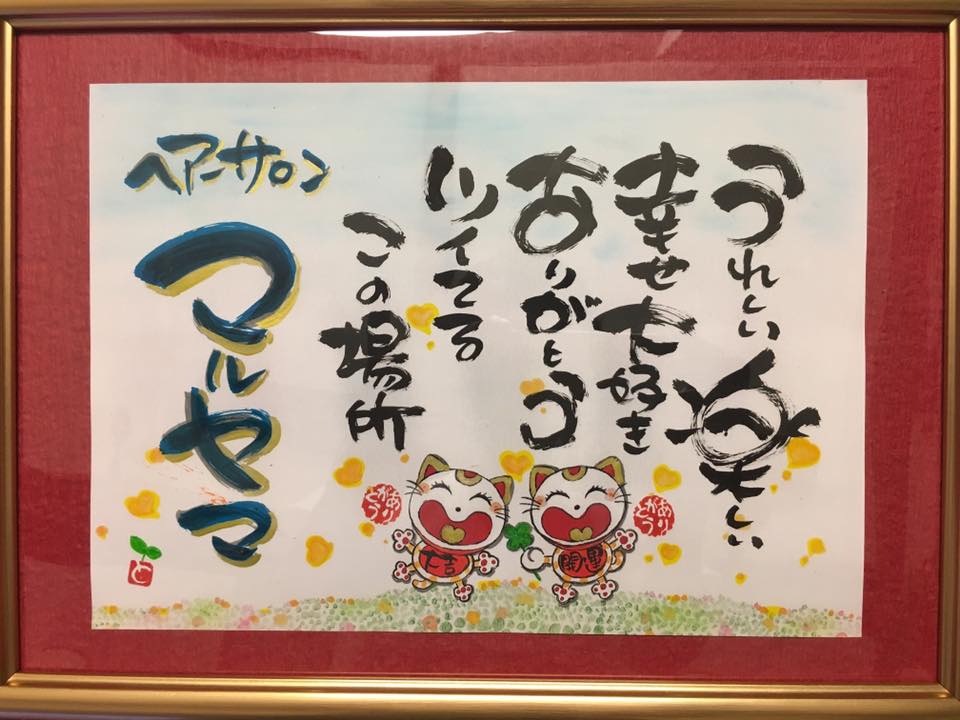 うれしい楽しい
幸せ大好き
ありがとう
ツイてる
この場所
ヘアーサロン
マルヤマ
ありがとう
大吉
開運
ありがとう